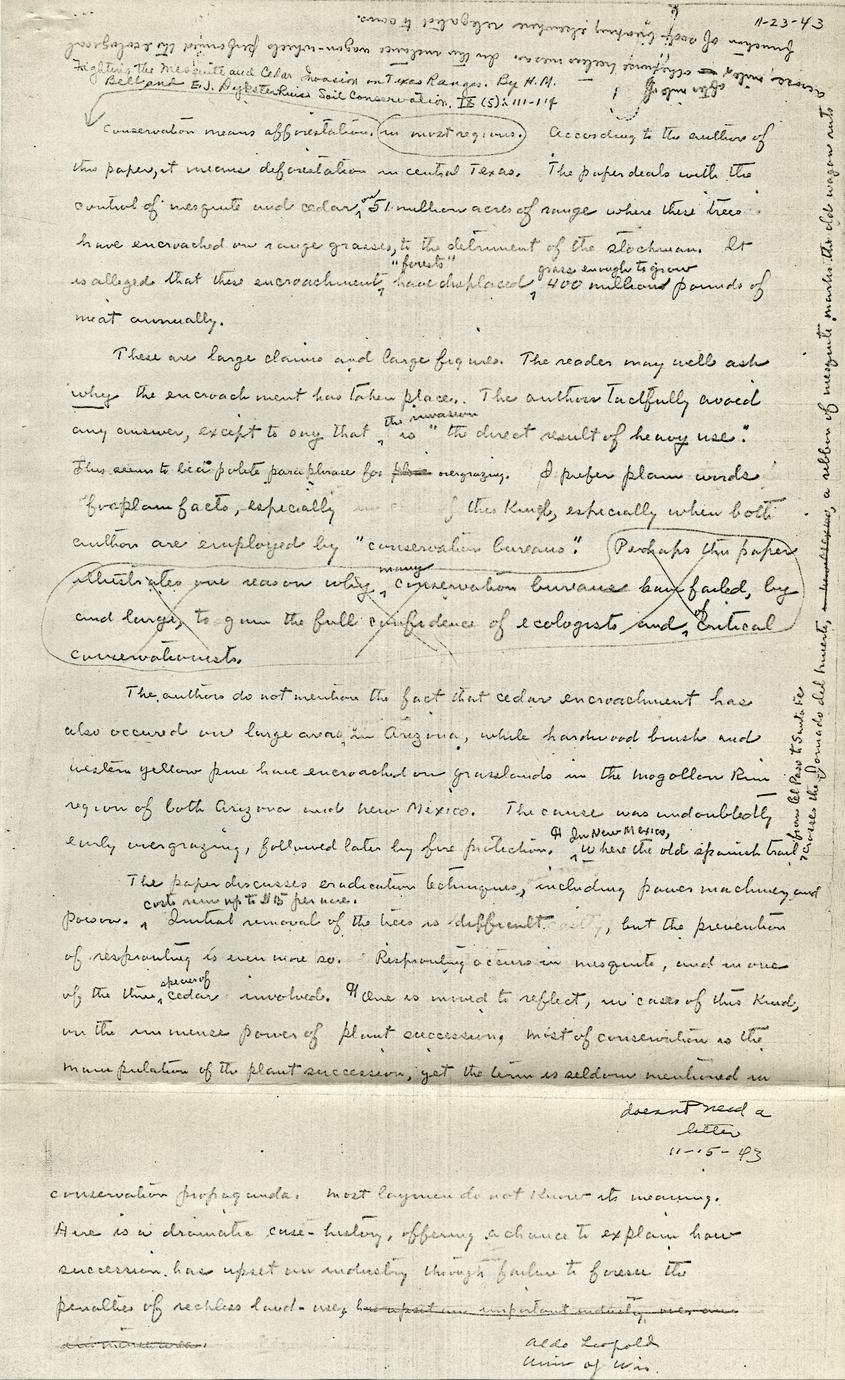 11-23-43
Fighting the Mesquite and Cedar Invasion on Texas Ranges. By H.M.
Bell and E.J. Dyksterhuis. Soil Conservation, IX (5): 111-114
Conservation means afforestation in most regions. According to the authors of
this paper, it means deforestation in central Texas. The paper deals with the
control of mesquite and cedar on 51 million acres of range where these trees
have encroached on range grasses, to the detriment of the stockman. It
is alleged that these encroachment "forests" have displaced grass enough to grow 400 million pounds of
meat annually.
These are large claims and large figures. The reader may well ask
why the encroachment has taken place. The authors tactfully avoid
any answer, except to say that the invasion is "the direct result of heavy use".
This seems to be a polite paraphrase for overgrazing. I prefer plain words
for plain facts, especially of this kind, especially when both
authors are employed by "conservation bureaus". Perhaps this paper
illustrates one reason why many conservation bureaus have failed, by
and large, to gain the full confidence of ecologists and of critical
conservationists.
The authors do not mention the fact that cedar encroachment has
also occured on large areas in Arizona, while hardwood brush and
western yellow pine have encroached on grasslands in the Mogollon Rim
region of both Arizona and New Mexico. The cause was undoubtedly
early overgrazing, followed later by fire protection. ¶ In New Mexico, where the old Spanish trail
from El Paso to Santa Fe
crosses the Jornado del Muerto, a ribbon of mesquite marks the old wagon ruts
across miles
after mile of otherwise treeless mesa. In this instance wagon-wheels performed the ecological
function of elsewhere relegated to cows.
The paper discusses eradication techniques, including power machinery and
poison. costs run up to per acre. Initial removal of the trees is difficult, but the prevention
of resprouting is even more so. Resprouting occurs in mesquite, and in one
of the three species of cedar involved. ¶ One is moved to reflect, in cases of this kind,
on the immense power of plant succession. Most of conservation is the
manipulation of the plant succession, yet the term is seldom mentioned in
doesn't need a
letter
11-15-43
conservation propaganda. Most laymen do not know its meaning.
Here is a dramatic case-history, offering a chance to explain how
succession has upset an industry through failure to foresee the
penalties of reckless land-use, has upset an important industry over an
immense area.
Aldo Leopold
Univ of Wis.